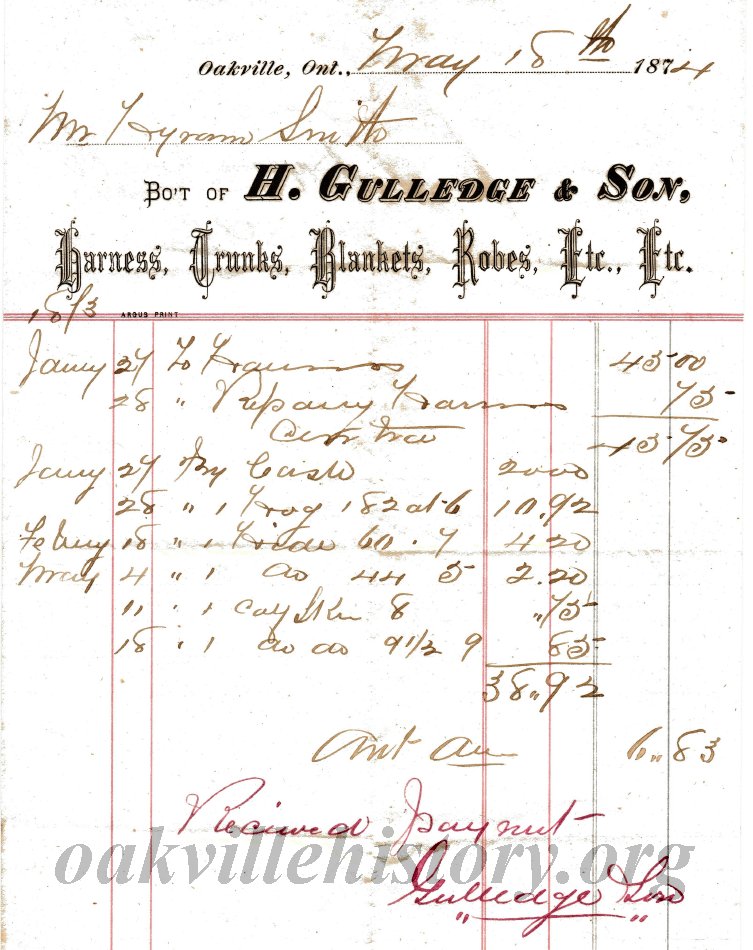 Oakville, Ont., May 18th 1874
Mr Hyram Smith
BO'T OF H. GULLEDGE & SON,
Harness, Trunks, Blankets, Robes, Etc., Etc.
1873
ARGUS PRINT
Jany 27 To Harness 45 00
28 " Reparing Harness 75
Contra 45 75
Jany 27 By Cash 20 00
28 " 1 Hog 182 at 6 10.92
Febury 18 " 1 Hide 60 . 7 4 20
May 4 " 1 do 44 5 2.20
11 " 1 calf Skin 8 " 75
18 " 1 do do 9 1/2 9 85
38 " 92
Amt due 6 " 83
Recived payment
Gulledge & Son
oakvillehistory.org